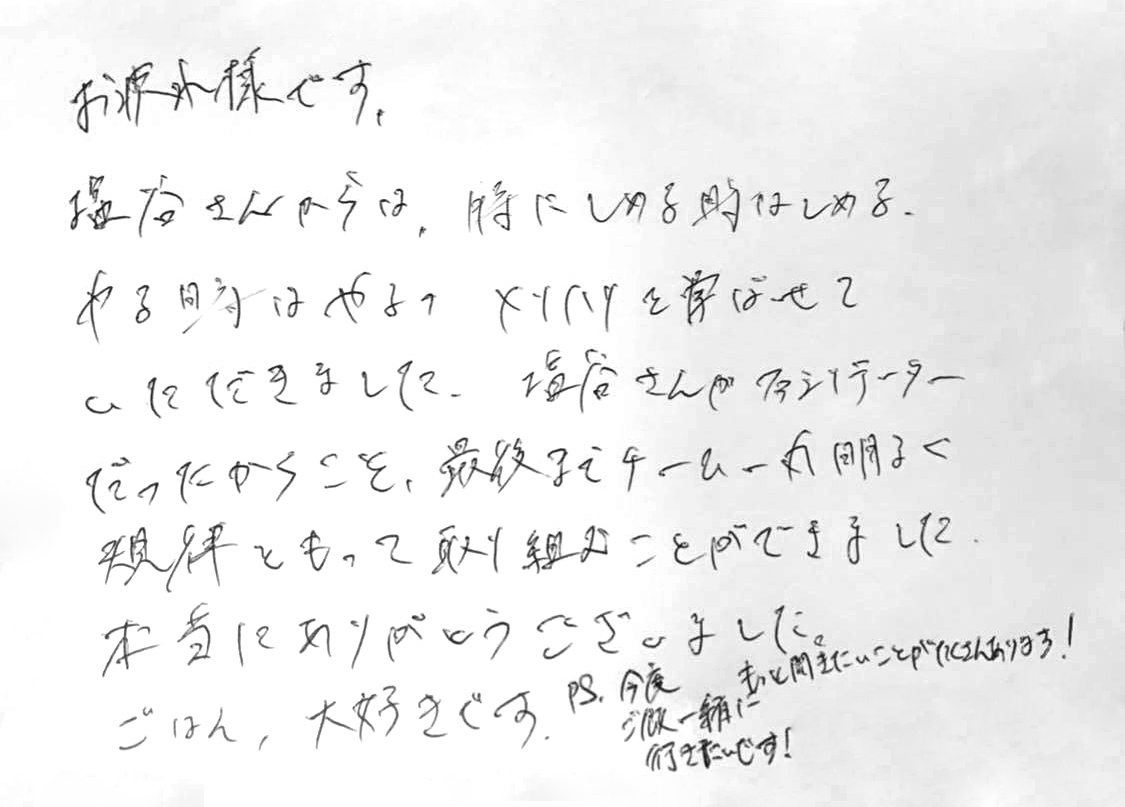 お疲れ様です。
塩谷さんからは、特にしめる時はしめる、
やる時はやる、メリハリを学ばせて
いただきました。塩谷さんがファシリテーター
だったからこそ、最後までチーム一丸明るく
規律をもって取り組むことができました。
本当にありがとうございました。
ごはん、大好きです。
PS. 今度
ご飯一緒に
行きたいです!
もっと聞きたいことがたくさんあります!